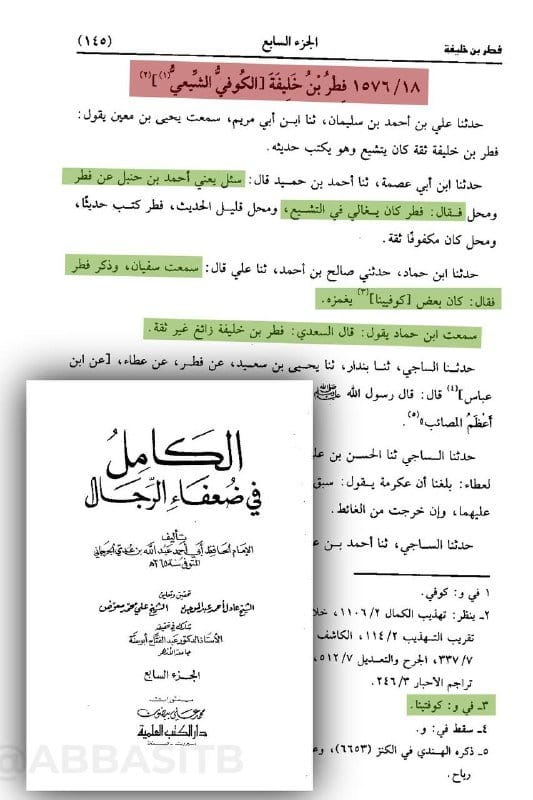 فطر بن خليفة
الجزء السابع
(١٤٥)
١٥٧٦/١٨ فِطْرُ بْنُ خَلِيفَةَ [الكُوفيُّ الشِّيعيُّ(١)](٢)
حدثنا علي بن أحمد بن سليمان، ثنا ابن أبي مريم، سمعت يحيى بن معين يقول:
فطر بن خليفة ثقة كان يتشيع وهو يكتب حديثه.
حدثنا ابن أبي عصمة، ثنا أحمد بن حميد قال: سئل يعني أحمد بن حنبل عن فطر
ومحل فـقـال: فطر كان يـغـالي في التشـيع، ومحل قليـل الحديث، فطر كتـب حديثًا،
ومحل كان مكفوفًا ثقة.
حدثنا ابن حماد، حدثني صالح بن أحمد، ثنا علي قال: سمعت سفيان، وذكر فطر
فقال: كان بعض [كوفيينا](٣) يغمزه.
سمعت ابن حماد يقول: قال السعدي: فطر بن خليفة زائغ غير ثقة.
حدثنـا الساجي، ثنـا بندار، ثنا يحيى بن سـعيد، عن فطـر، عن عطاء، [عن ابن
عباس](٤) قال: قال رسول الله ﷺ
أَعْظَمُ المصائب»(٥).
حدثنـا السـاجي ثنا الحسن بن علـ
لعطاء: بلغنا أن عكرمة يـقول: سبق
عليهما، وإن خرجت من الغائط.
حدثنـا السـاجي، ثنـا أحمد بـن عـ
١ في و: كوفي.
٢ـ ينظر: تهذيب الكمال ١١٠٦/٢، خلا
تقريب التـهذيب ١١٤/٢، الكاشف
٣٣٧/٧، الجرح والتعديل ٥١٢/٧،
تراجم الأحبار ٢٤٦/٣.
٣ـ في و: كوفتينا.
٤ـ سقط في: و.
٥ـ ذكره الهندي في الكنز (٦٦٥٣)، وعـ
رباح.
الكامل
في ضعفاء الرجال
تأليف
الإمام الحافظ أبي أحمد عبد الله بن عدي الجرجاني
المتوفى سنة ٣٦٥هـ
تحقيق وتعليق
الشيخ عادل أحمد عبد الموجود الشيخ علي محمد معوض
شارك في تحقيقه
الأستاذ الدكتور عبد الفتاح أبو سنة
جامعة الأزهر
الجزء السابع
منشورات
محمد علي بيضون
دار الكتب العلمية
بيروت - لبنان
@ABBASITB